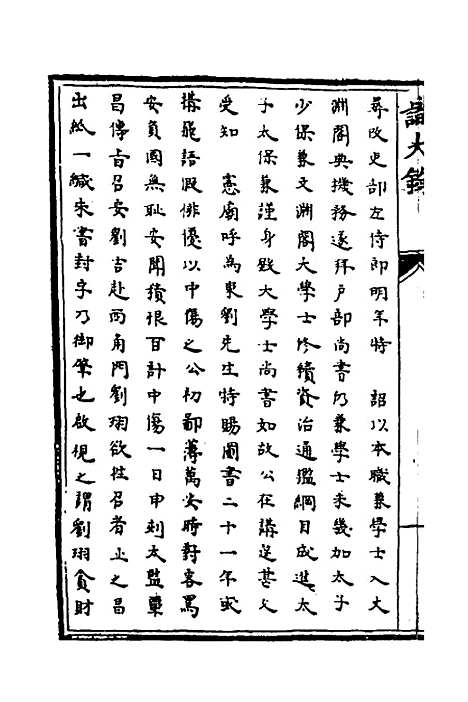 尋改吏部左侍郎明年特　詔以本職兼學士入文
淵閣典機務遂拜戶部尚書仍兼學士未幾加太子
少保兼文淵閣大學士修續資治通鑑綱目成進太
子太保兼謹身殿大學士尚書如故公在講筵甚久
受知　憲廟呼為東劉先生特賜圖書二十一年或
搆飛語假俳優以中傷之公初鄙薄萬安時對客罵
安負國無耻安聞積恨百計中傷一日申刻太監覃
昌傳旨召安劉吉赴西角門劉珝欲往召者止之昌
出紙一緘朱書封字乃御筆也啟視之謂劉珝貪財